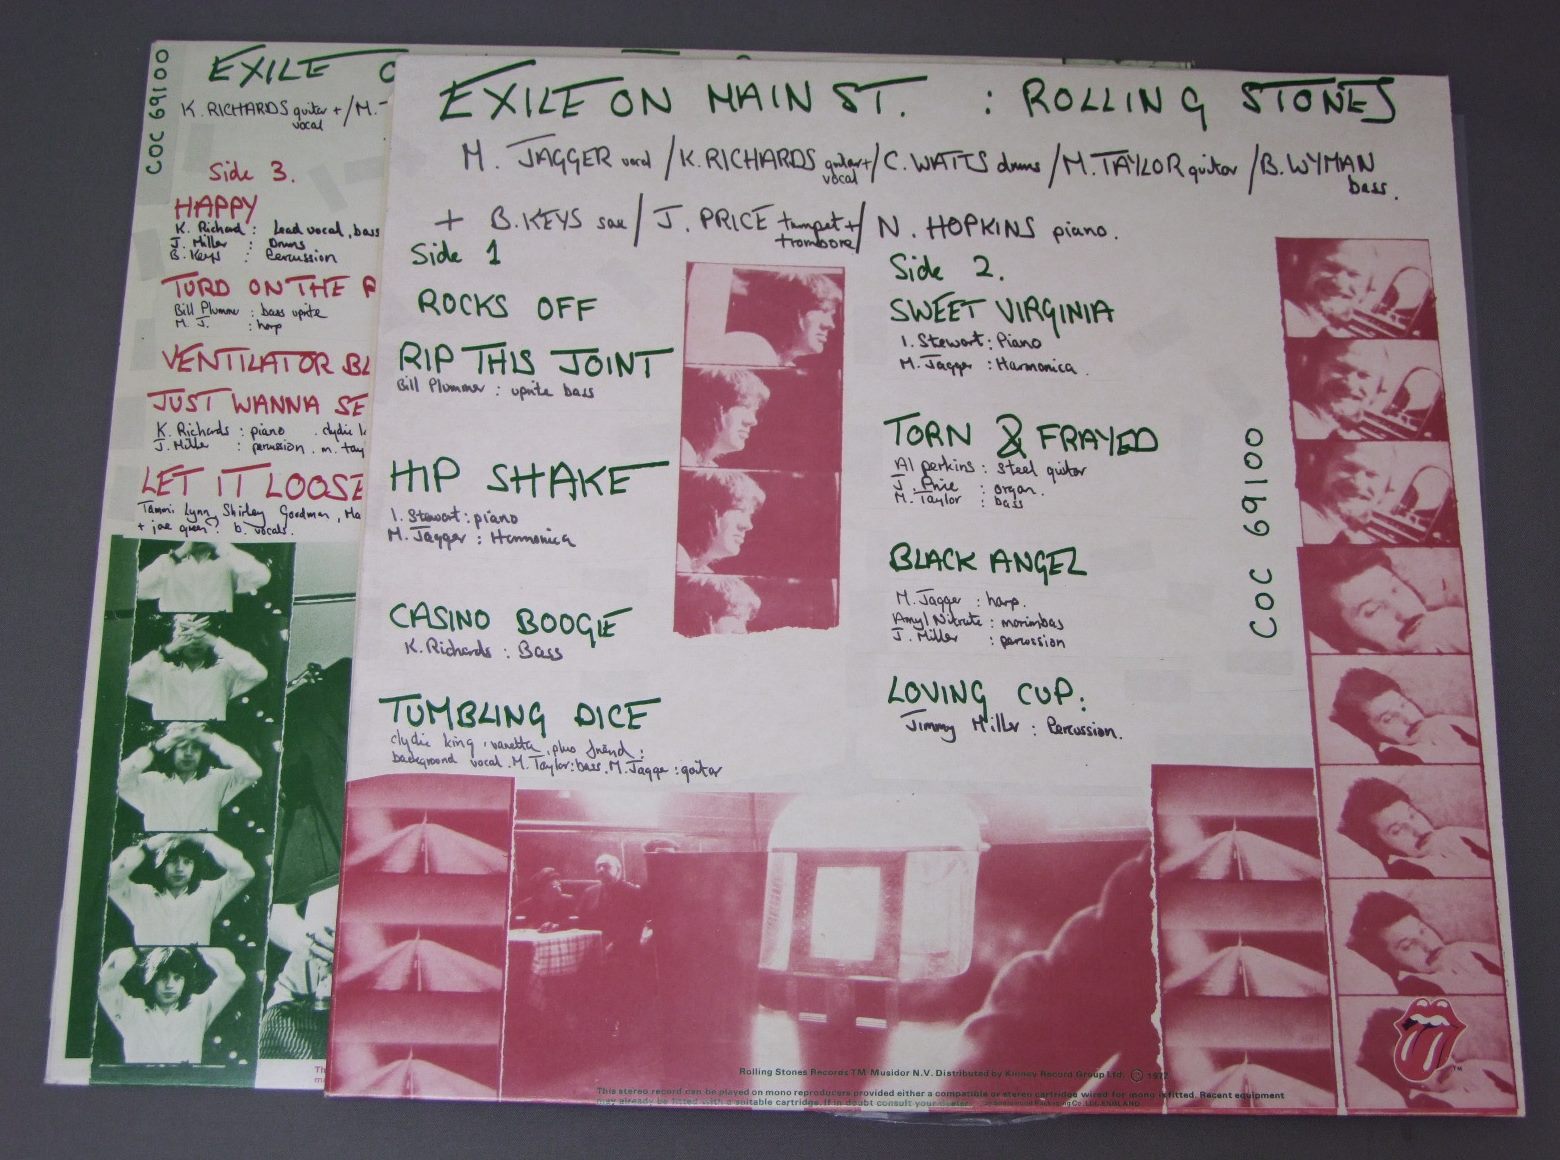 COC 69100
EXILE O
K. RICHARDS guitar + / M. T
vocal
Side 3.
HAPPY
K. Richard : Lead vocal, bass
J. Miller : Drums
B. Keys : Percussion
TURD ON THE R
Bill Plummer : bass uprite
M. J. : harp
VENTILATOR BL
JUST WANNA SE
K. Richards : piano . clydie k
J. Miller : percussion . m. tay
LET IT LOOSE
Tammi Lynn, Shirley Goodman, Ma
+ joe green : b. vocals.
EXILE ON MAIN ST. : ROLLING STONES
M. JAGGER vocal / K. RICHARDS guitar + / C. WATTS drums / M. TAYLOR guitar / B. WYMAN
vocal
bass.
+ B. KEYS sax / J. PRICE trumpet + / N. HOPKINS piano.
trombone
Side 1
ROCKS OFF
RIP THIS JOINT
Bill Plummer : uprite bass
HIP SHAKE
I. Stewart : piano
M. Jagger : Harmonica
CASINO BOOGIE
K. Richards : Bass
TUMBLING DICE
clydie king, vanetta, plus friend :
background vocal . M. Taylor : bass . M. Jagger : guitar
Side 2.
SWEET VIRGINIA
I. Stewart : Piano
M. Jagger : Harmonica
TORN & FRAYED
Al perkins : steel guitar
J. Price : organ.
M. Taylor : bass
BLACK ANGEL
M. Jagger : harp.
Amyl Nitrate : marimbas
J. Miller : percussion
LOVING CUP :
Jimmy Miller : Percussion.
COC 69100
TM
Rolling Stones Records TM Musidor N.V. Distributed by Kinney Record Group Ltd. © 1972
This stereo record can be played on mono reproducers provided either a compatible or stereo cartridge wired for mono is fitted. Recent equipment
may already be fitted with a suitable cartridge. If in doubt consult your dealer.
Th
m